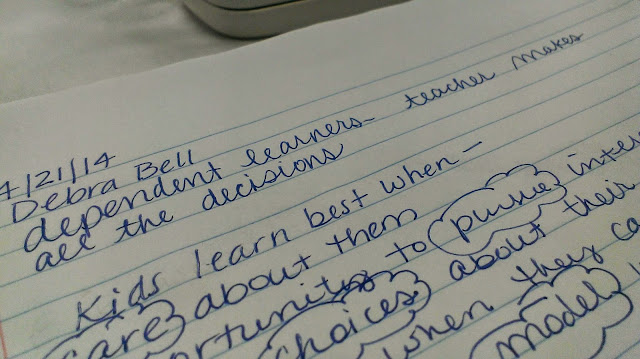 4/21/14
Debra Bell
dependent learners- teacher makes
all the decisions
Kids learn best when -
care about them
to pursue
choices about their
when they
model